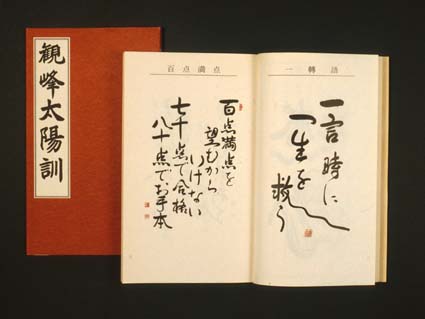 観峰太陽訓
一轉語
一言時に
一生を
救う
百点満点
百点満点を
望むから
いけない
七十点で合格
八十点でお手本